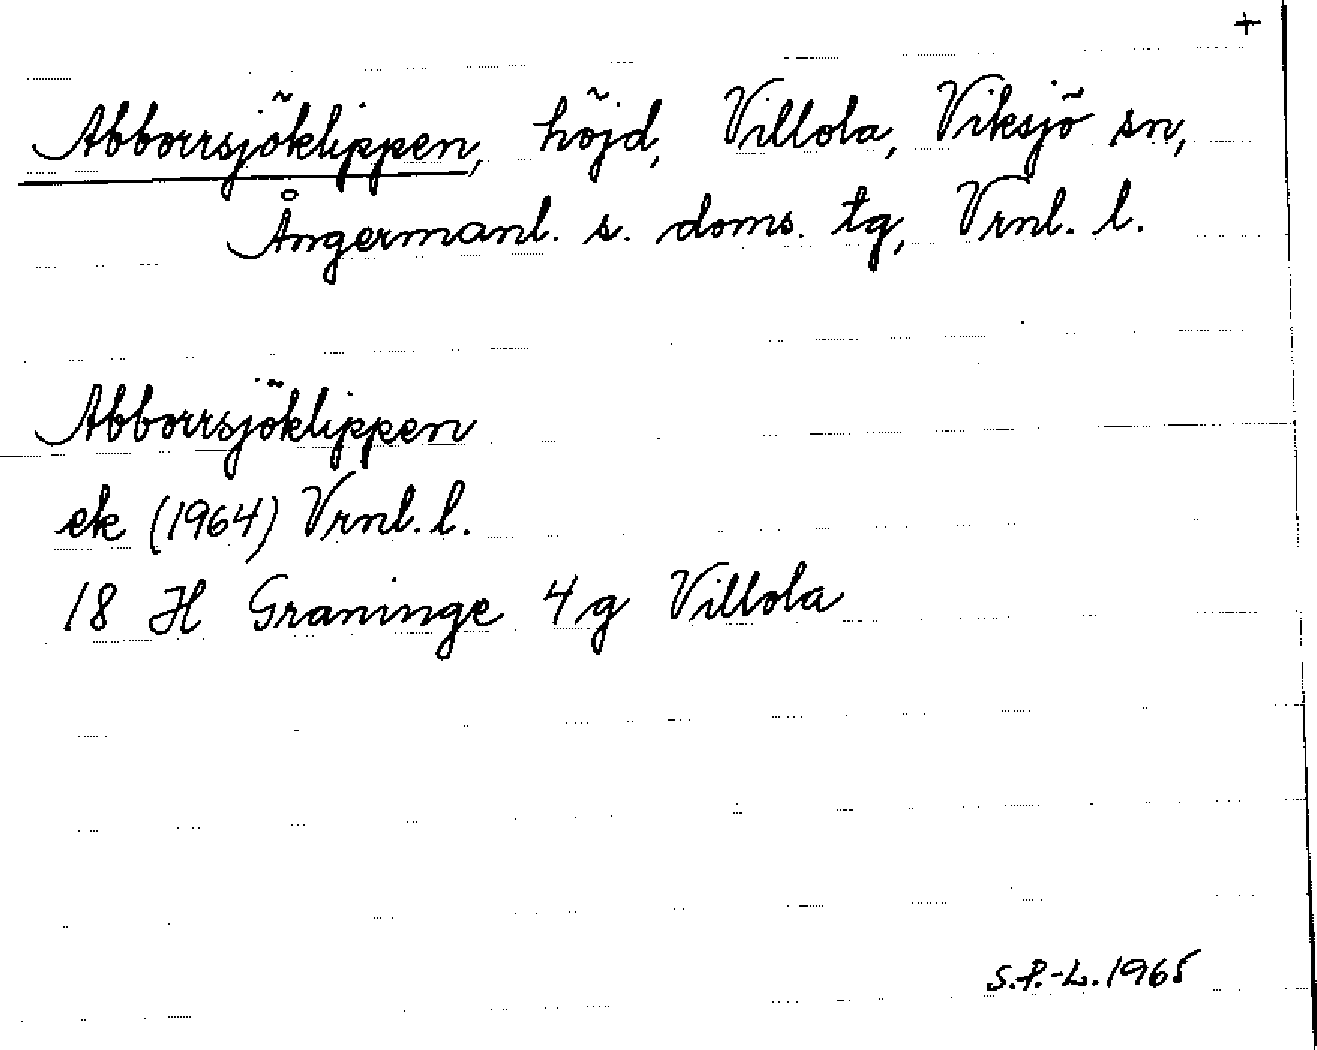 +
Abborrsjöklippen, höjd, Villola, Viksjö sn,
Ångermanl. s. doms. tg, Vrnl. l.
Abborrsjöklippen
ek (1964) Vrnl. l.
18 H Graninge 4g Villola
S.P.-L. 1965